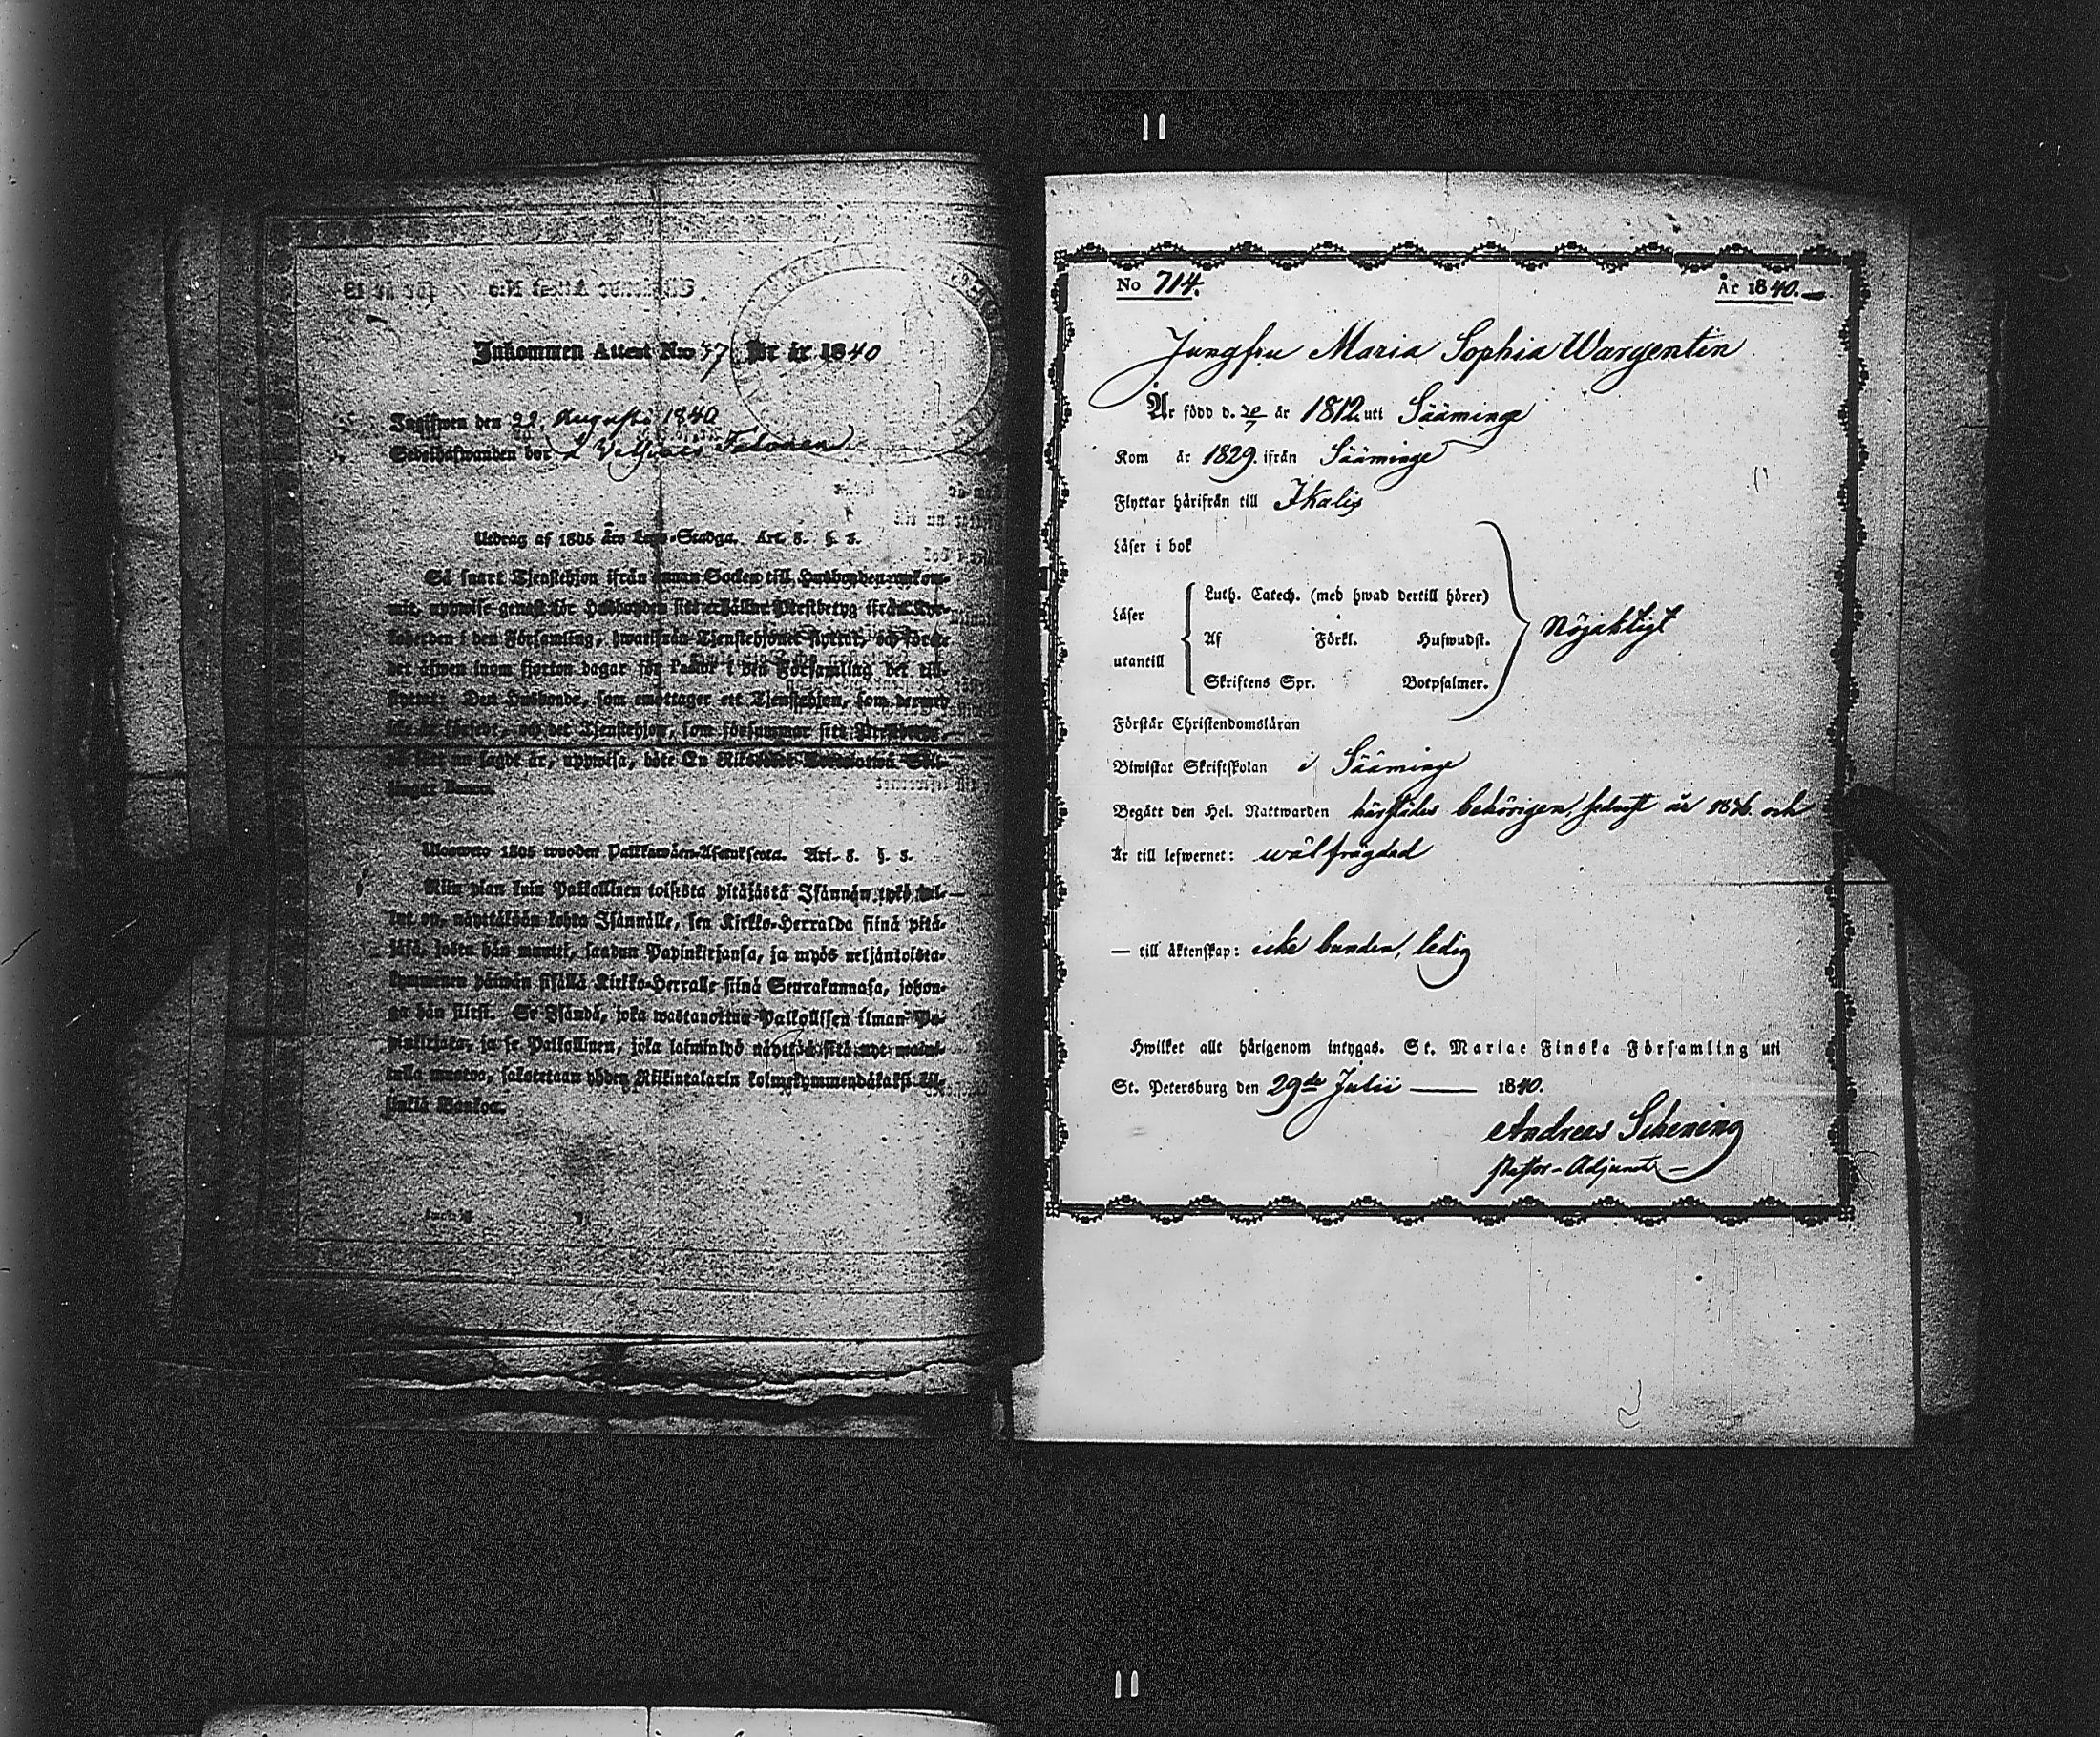 Inkommen Attest N:o 57 för år 1840
Ingifwen den 22. Augusti 1840
Sedelhafwanden bor
Utdrag af 1805 års Lego-Stadga. Art. 8. §. 3.
Så snart Tjenstehjon ifrån annan Socken till Husbonden ankom-
mit, uppwise genast för Husbonden sitt erhållne Prestbetyg ifrån Kyr-
koherden i den Församling, hwarifrån Tjenstehjonet flyttat, och förete
det äfwen inom fjorton dagar för Pastor i den Församling det till-
flyttat: Den Husbonde, som emottager ett Tjenstehjon, som dermed
icke är försedt, och det Tjenstehjon, som försummar sitt Prestbetyg
på sätt nu sagdt är, uppwisa, böte En Riksdaler Trettiotwå Skil-
lingar Banco.
Wuowero 1805 wuoden Palkkawäen-Asetuksesta. Art. 8. §. 3.
Niin pian kuin Palkollinen toisesta pitäjästä Isännän tykö tul-
lut on, näyttäköön kohta Isännälle, sen Kirkko-Herralda siinä pitä-
jäsä, josta hän muutti, saadun Papinkirjansa, ja myös neljäntoista-
kymmenen päiwän sisällä Kirkko-Herralle siinä Seurakunnasa, johon-
ga hän siirsi. Se Isändä, joka wastanottaa Palkollisen ilman Pa-
pinkirjata, ja se Palkollinen, joka laiminlyö näyttää sitä nyt maini-
tulla muotoa, sakotetaan yhden Riikintalarin kolmekymmendäkaksi kil-
lingiä Bankoa.
No 714. År 1840.
Jungfru Maria Sophia Wargentin
Är född d. 20/7 år 1812 uti Sääminge
Kom år 1829. ifrån Sääminge
Flyttar härifrån till Ikalis
Läser i bok
Luth. Catech. (med hwad dertill hörer)
Läser
Af Förkl. Hufwudst. Nöjaktigt
utantill
Skriftens Spr. Botpsalmer.
Förstår Christendomsläran
Biwistat Skriftskolan i Sääminge
Begått den Hel. Nattwarden härstädes behörigen, sednast år och
Är till lefwernet: wälfrägdad
— till äktenskap: icke bunden, ledig
Hwilket allt härigenom intygas. St. Mariae Finska Församling uti
St. Petersburg den 29de Julii — 1840.
Andreas Schening
Pastor-Adjunct